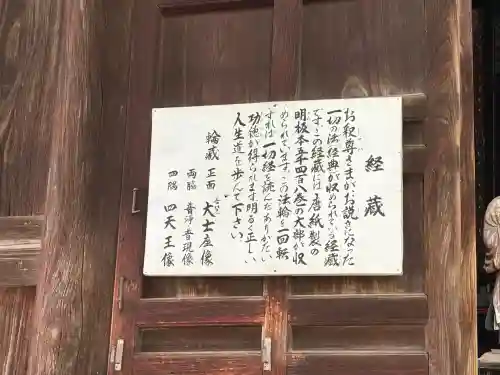 経蔵
お釈尊さまがお説きになった
一切の法経典が収められている経蔵
です。この経蔵には唐紙製の
明板本五千四百八巻の大部が収
められています。この法輪を一回転
すれば一切経を読んだありがたい
功徳が得られます。明るく正しい
人生道を歩んで下さい。
輪蔵 正面 大士座像
両脇 普浄 普現像
四隅 四天王像